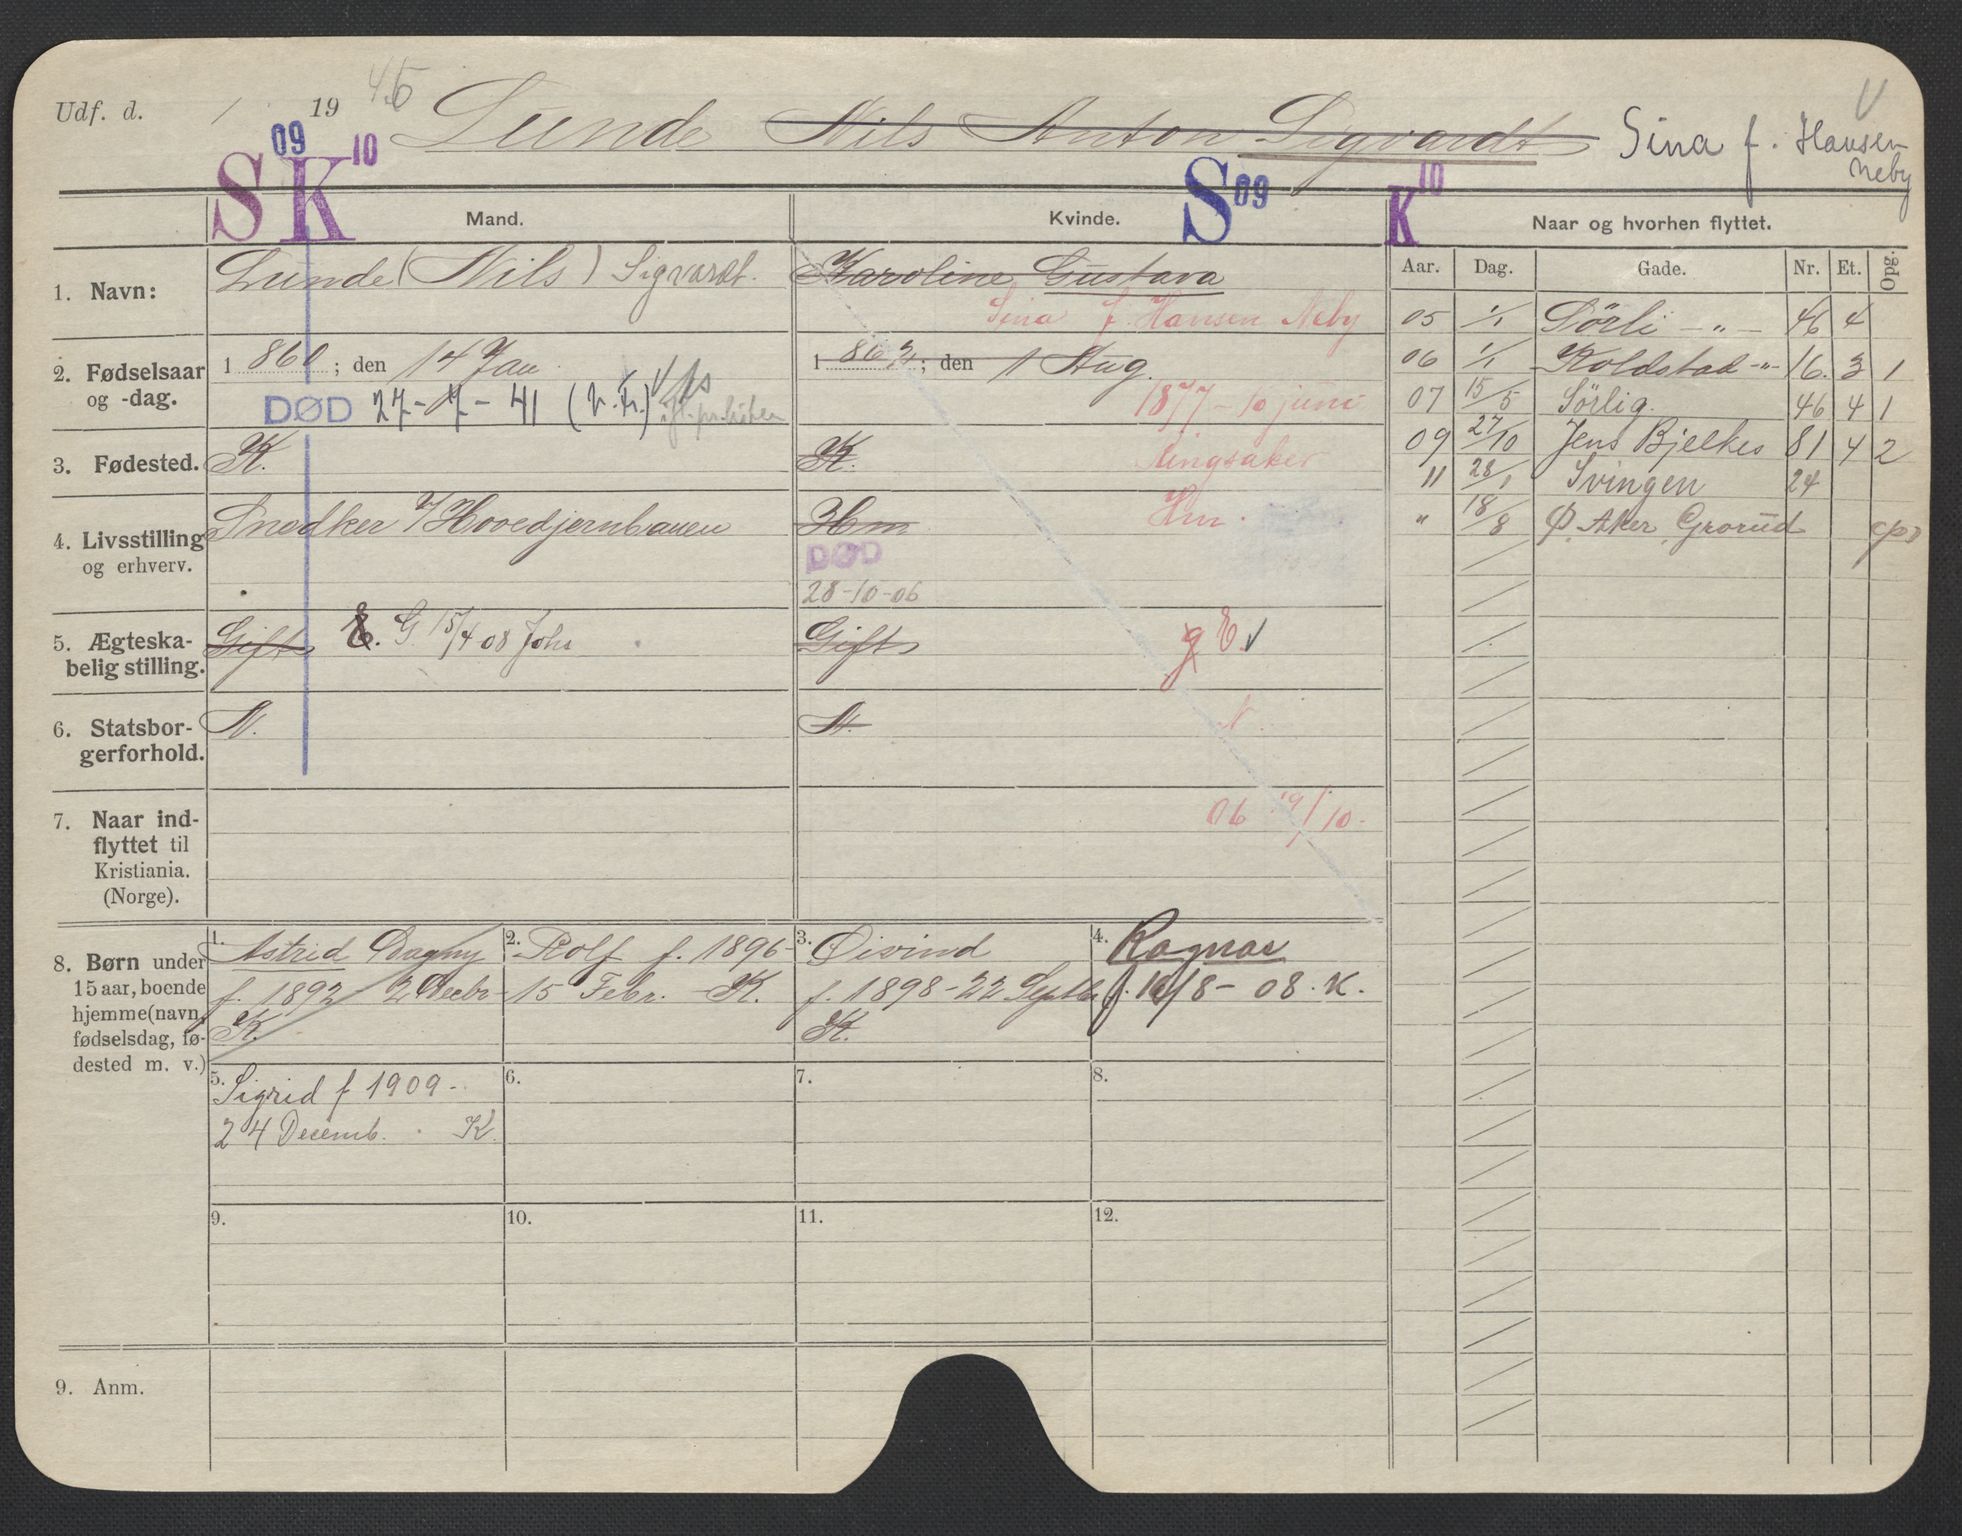 Udf. d. / 19 45 Lunde Nils Anton Sigvardt Sina f. Hansen Neby
V
S 09 K 10 S 09 K 10
Mand. Kvinde. Naar og hvorhen flyttet.
Aar. Dag. Gade. Nr. Et. Opg.
1. Navn: Lunde (Nils) Sigvardt. Karoline Gustava
Sina f. Hansen Neby
2. Fødselsaar og -dag. 1 860; den 14 Jan. 1 862; den 1 Aug.
DØD 27-7-41 (v. Fr.)
1877 - 10 juni
3. Fødested. K. K. Ringsaker
4. Livsstilling og erhverv. Snedker v/Hovedjernbanen Hm Hm.
DØD
28-10-06
5. Ægteska-
belig stilling. Gift E. G 15/4 08 Johs Gift g E.
6. Statsbor-
gerforhold. N. N. N.
7. Naar ind-
flyttet til
Kristiania.
(Norge).
06 19/10-
8. Børn under
15 aar, boende
hjemme (navn,
fødselsdag, fø-
dested m. v.)
1. Astrid Dagny
f. 1892 2 Decbr
K.
2. Rolf f. 1896-
15 Febr. K.
3. Øivind
f. 1898-22 Septb
K.
4. Ragnar
f. 18/8-08. K.
5. Sigrid f 1909-
24 Decemb. K
6.
7.
8.
9.
10.
11.
12.
9. Anm.
05 1/1 Sörli -"- 46 4
06 1/1 Koldstad -"- 16. 3 1
07 15/5 Sörlig. 46 4 1
09 27/10 Jens Bjelkes 81 4 2
11 28/1 Svingen 24
" 18/8 Ø. Aker, Grorud